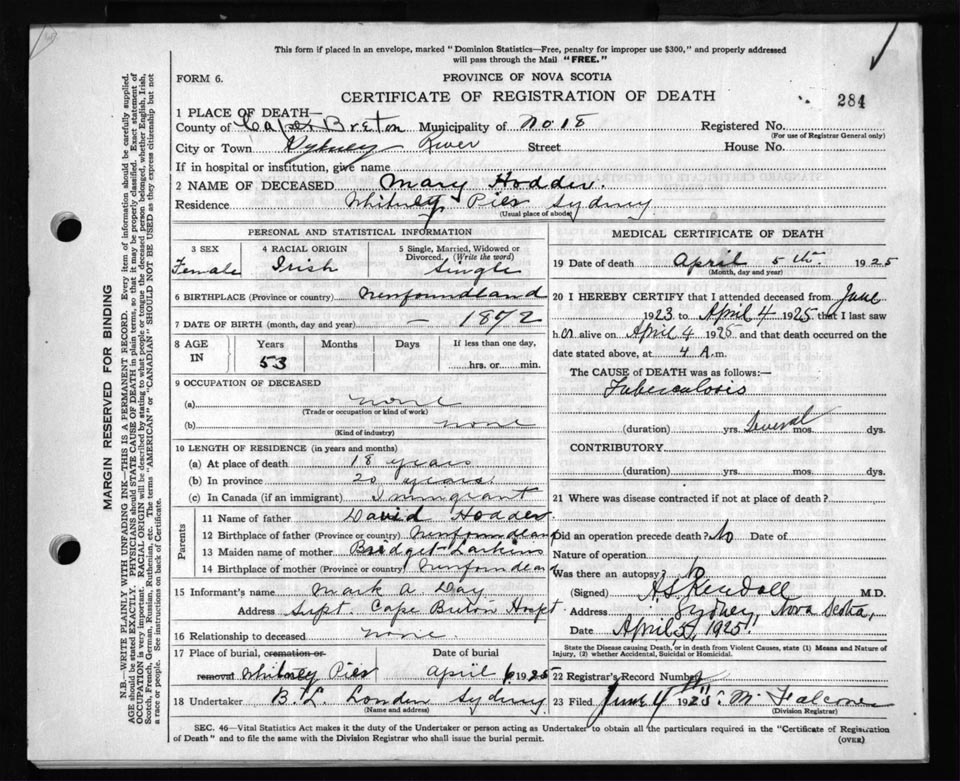 This form if placed in an envelope, marked "Dominion Statistics—Free, penalty for improper use $300," and properly addressed
will pass through the Mail "FREE."
FORM 6.
PROVINCE OF NOVA SCOTIA
CERTIFICATE OF REGISTRATION OF DEATH
284
1 PLACE OF DEATH—
County of Cape Breton Municipality of No 18 Registered No.
(For use of Registrar General only)
City or Town Sydney River Street House No.
If in hospital or institution, give name
2 NAME OF DECEASED Mary Hodder.
Residence Whitney Pier Sydney
(Usual place of abode)
PERSONAL AND STATISTICAL INFORMATION
3 SEX 4 RACIAL ORIGIN 5 Single, Married, Widowed or
Divorced. (Write the word)
Female Irish Single
6 BIRTHPLACE (Province or country) Newfoundland
7 DATE OF BIRTH (month, day and year) — 1872
8 AGE IN Years Months Days If less than one day,
53 hrs. or min.
9 OCCUPATION OF DECEASED
(a) none
(Trade or occupation or kind of work)
(b) none
(Kind of industry)
10 LENGTH OF RESIDENCE (in years and months)
(a) At place of death 18 years
(b) In province 20 years
(c) In Canada (if an immigrant) Immigrant
Parents
11 Name of father David Hodder
12 Birthplace of father (Province or country) Newfoundland
13 Maiden name of mother Bridget Larkins
14 Birthplace of mother (Province or country) Newfoundland
15 Informant's name Mark A Day
Address Supt. Cape Breton Hospt.
16 Relationship to deceased none.
17 Place of burial, cremation or Date of burial
removal Whitney Pier April 6 1925
18 Undertaker B. L. London Sydney
(Name and address)
MEDICAL CERTIFICATE OF DEATH
19 Date of death April 5th 1925
(Month, day and year)
20 I HEREBY CERTIFY that I attended deceased from June
1923 to April 4 1925 that I last saw
h er alive on April 4 1925 and that death occurred on the
date stated above, at 4 A.m.
The CAUSE of DEATH was as follows:—
Tuberculosis
(duration) yrs. Several mos. dys.
CONTRIBUTORY
(duration) yrs. mos. dys.
21 Where was disease contracted if not at place of death?
Did an operation precede death? No Date of
Nature of operation
Was there an autopsy?
(Signed) A S Kendall M.D.
Address Sydney, Nova Scotia,
Date April 5, 1925
State the Disease causing Death, or in death from Violent Causes, state (1) Means and Nature of
Injury, (2) whether Accidental, Suicidal or Homicidal.
22 Registrar's Record Number
23 Filed June 4 1925
(Division Registrar)
SEC. 46—Vital Statistics Act makes it the duty of the Undertaker or person acting as Undertaker to obtain all the particulars required in the "Certificate of Registration
of Death" and to file the same with the Division Registrar who shall issue the burial permit.
(OVER)
MARGIN RESERVED FOR BINDING
N.B.—WRITE PLAINLY WITH UNFADING INK—THIS IS A PERMANENT RECORD. Every item of information should be carefully supplied.
AGE should be stated EXACTLY. PHYSICIANS should STATE CAUSE OF DEATH in plain terms, so that it may be properly classified. Exact statement of
OCCUPATION is very important. RACIAL ORIGIN will be described by stating to what people or tongue the deceased person belonged, whether English, Irish,
Scotch, French, German, Russian, Ruthenian, etc. The terms "AMERICAN" or "CANADIAN" SHOULD NOT BE USED as they express citizenship but not
a race or people. See instructions on back of Certificate.